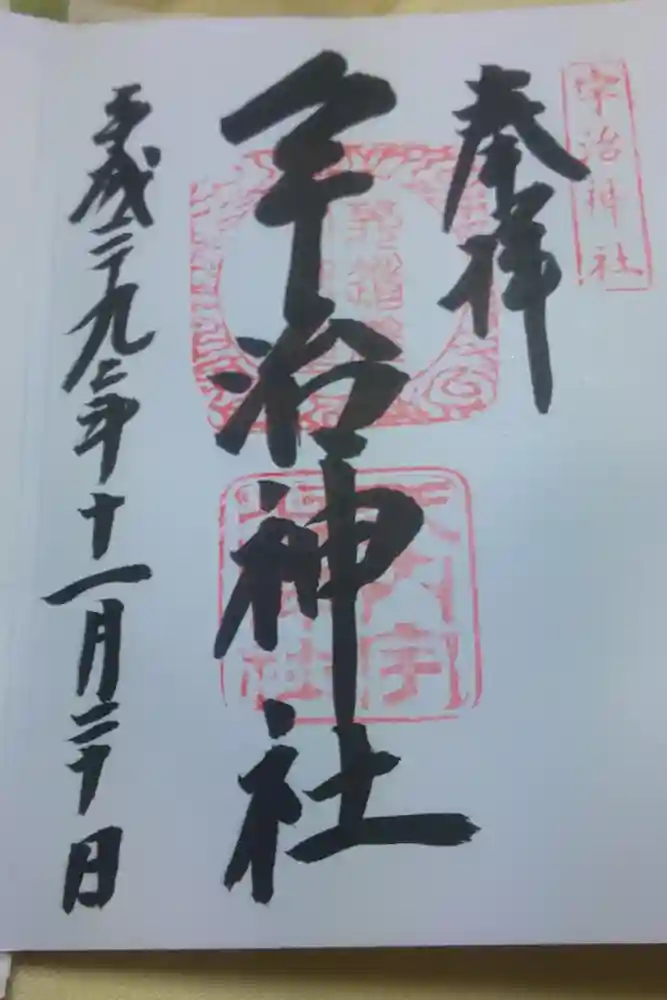 宇治神社
奉拝
宇治神社
平成二十九年十一月二十日